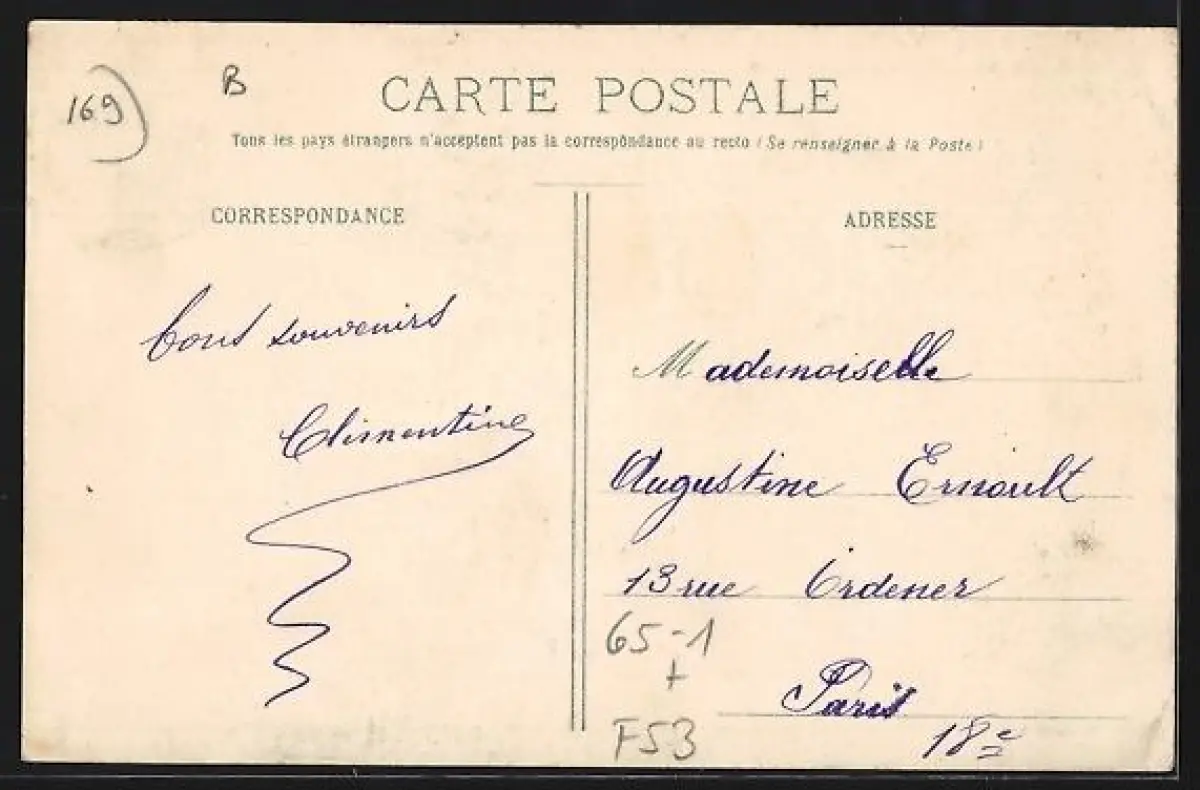 169)
B
CARTE POSTALE
Tous les pays étrangers n'acceptent pas la correspondance au recto (Se renseigner à la Poste)
CORRESPONDANCE
bons souvenirs
Clémentine
ADRESSE
Mademoiselle
Augustine Ernoult
13 rue Ordener
65-1
+
F53
Paris
18e